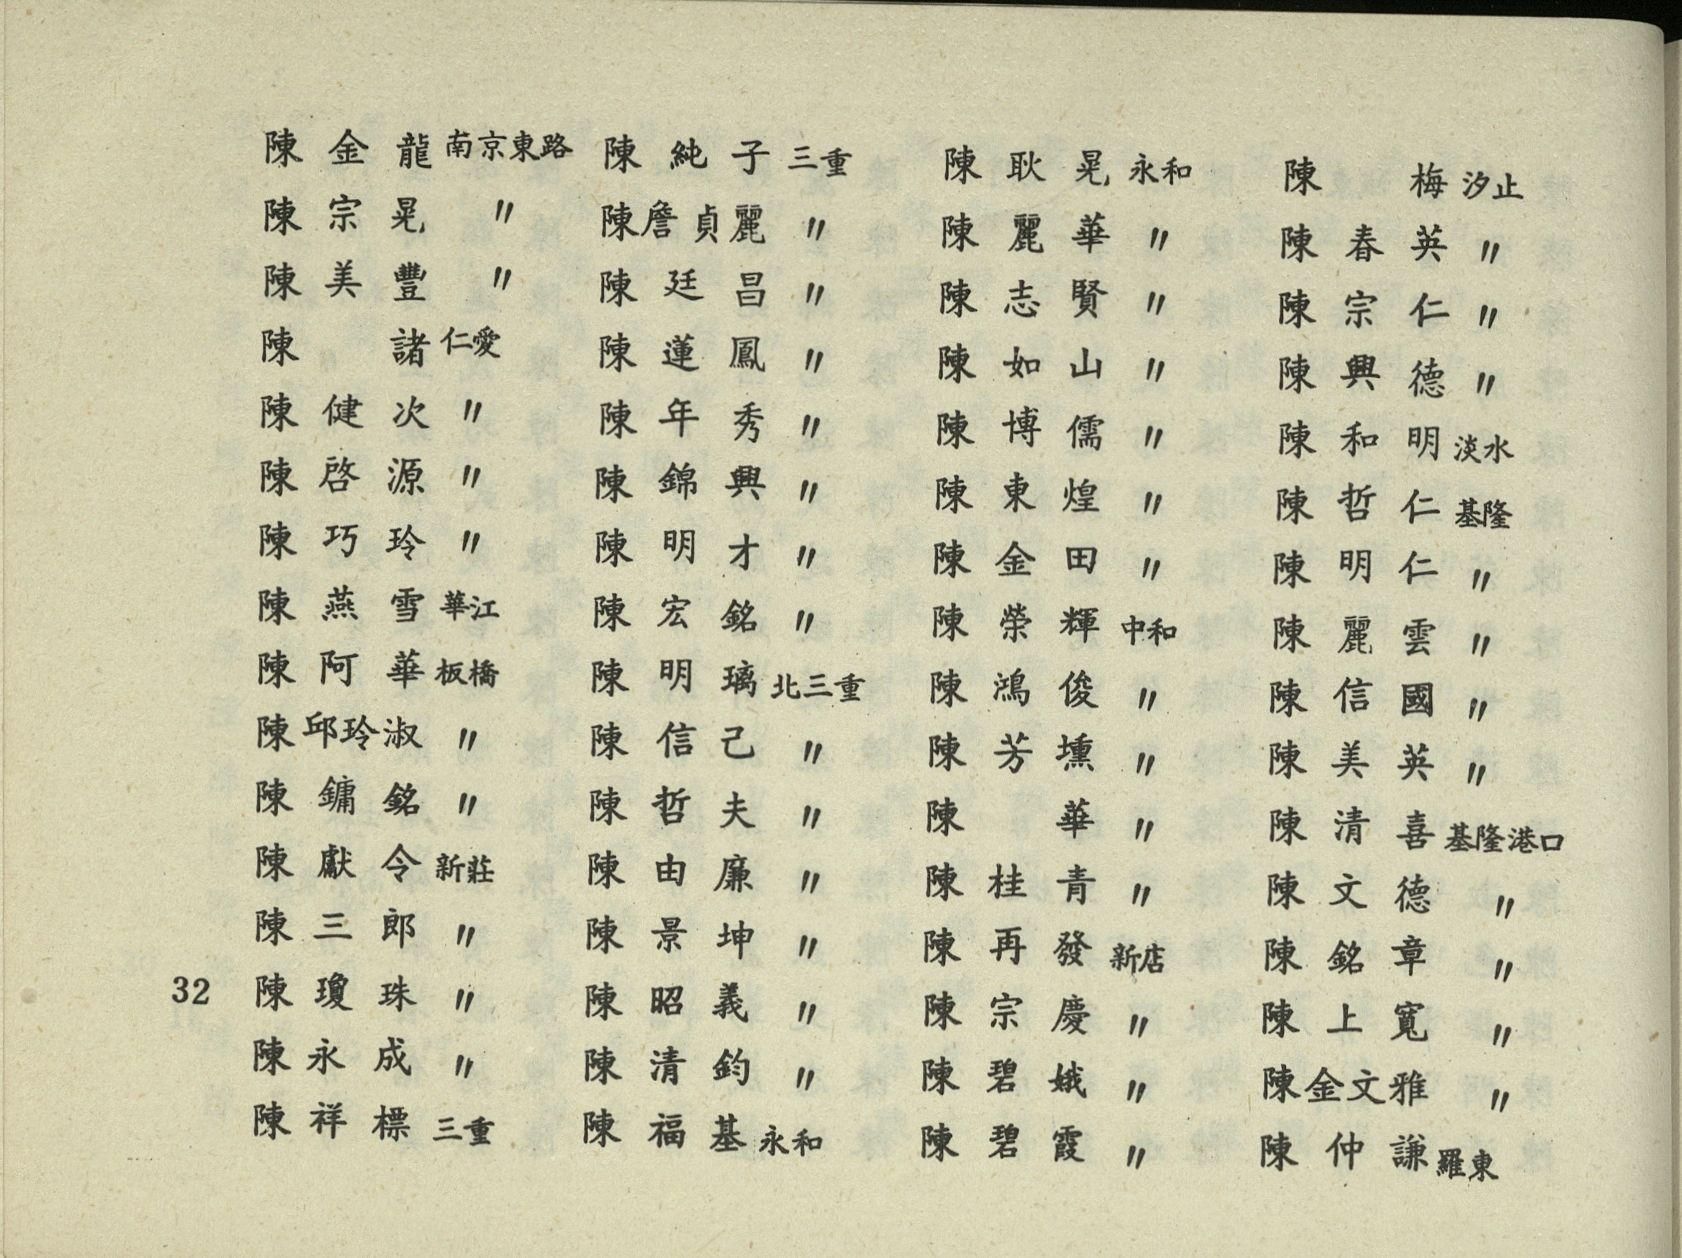 陳金龍 南京東路
陳宗晃 〃
陳美豐 〃
陳諸 仁愛
陳健次 〃
陳啓源 〃
陳巧玲 〃
陳燕雪 華江
陳阿華 板橋
陳邱玲淑 〃
陳鏞銘 〃
陳獻令 新莊
陳三郎 〃
陳瓊珠 〃
陳永成 〃
陳祥標 三重
陳純子 三重
陳詹貞麗 〃
陳廷昌 〃
陳蓮鳳 〃
陳年秀 〃
陳錦興 〃
陳明才 〃
陳宏銘 〃
陳明璃 北三重
陳信己 〃
陳哲夫 〃
陳由廉 〃
陳景坤 〃
陳昭義 〃
陳清鈞 〃
陳福基 永和
陳耿晃 永和
陳麗華 〃
陳志賢 〃
陳如山 〃
陳博儒 〃
陳東煌 〃
陳金田 〃
陳榮輝 中和
陳鴻俊 〃
陳芳壎 〃
陳華 〃
陳桂青 〃
陳再發 新店
陳宗慶 〃
陳碧娥 〃
陳碧霞 〃
陳梅 汐止
陳春英 〃
陳宗仁 〃
陳興德 〃
陳和明 淡水
陳哲仁 基隆
陳明仁 〃
陳麗雲 〃
陳信國 〃
陳美英 〃
陳清喜 基隆港口
陳文德 〃
陳銘章 〃
陳上寬 〃
陳金文雅 〃
陳仲謙 羅東
32